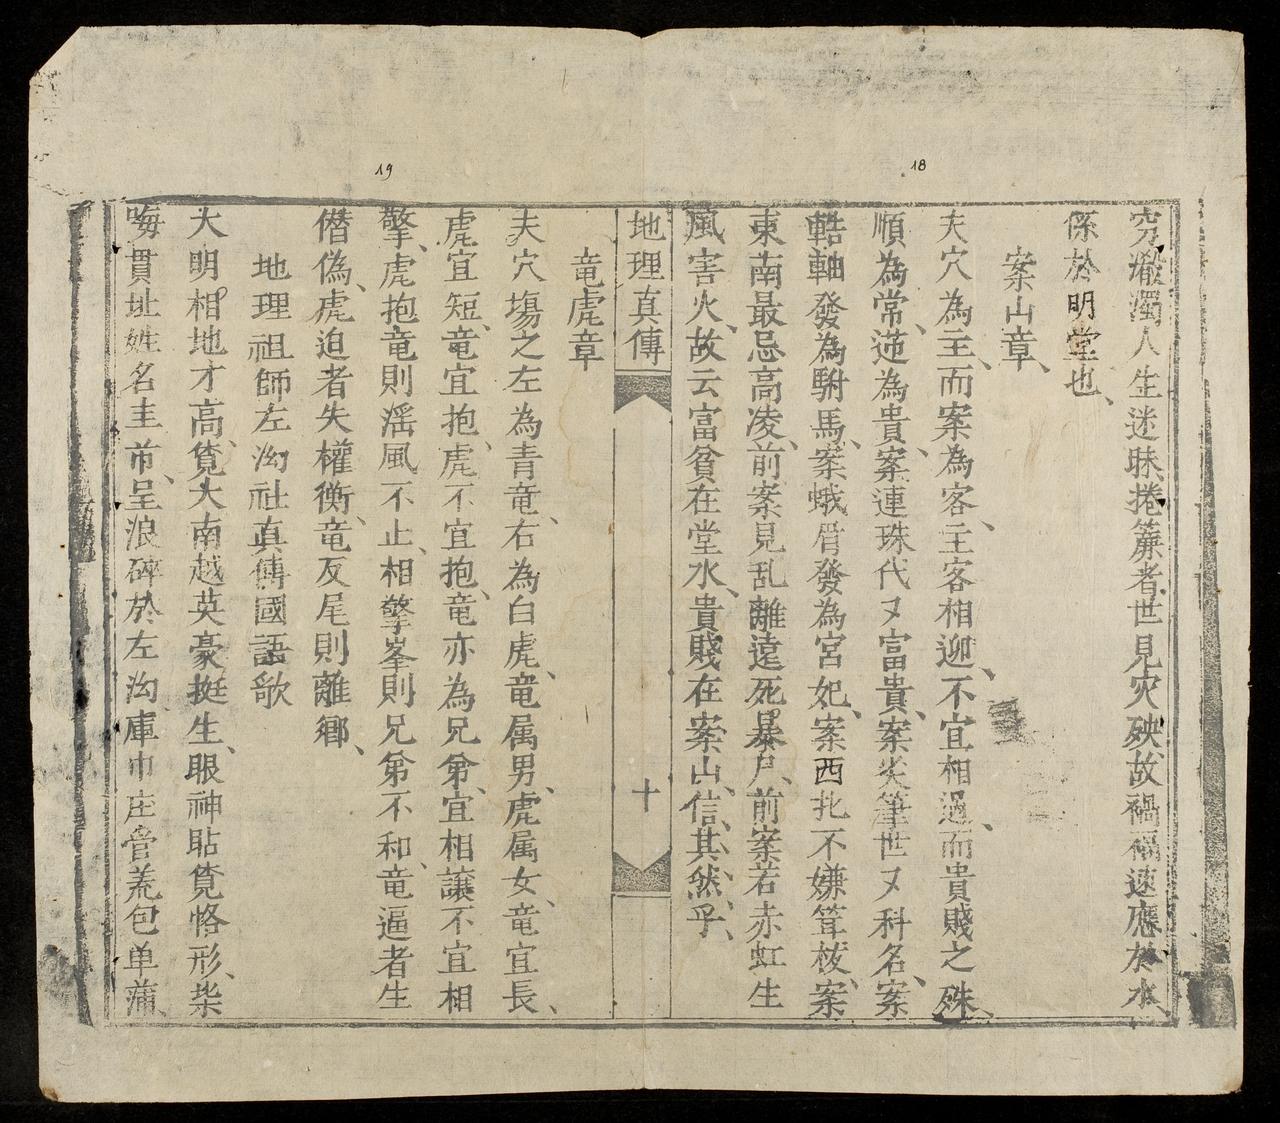 18
穷澱濁人生迷昧捲簾者世見灾殃故禍福速應於水、
係於明堂也、
案山章、
夫穴為主、而案為客、主客相迎、不宜相過、而貴賤之殊、
順為常、逆為貴、案連珠代又富貴、案尖筆世又科名、案
軸發為駙馬、案蛾眉發為宮妃、案西北不嫌聳拔、案
東南最忌高凌、前案見乱離遠死暴尸、前案若赤虹生
風害火、故云富貧在堂水、貴賤在案山、信其然乎、
地理真傳
十
19
竜虎章
夫穴塲之左為青竜、右為白虎、竜属男、虎属女、竜宜長、
虎宜短、竜宜抱、虎不宜抱、竜亦為兄弟、宜相讓不宜相
擎、虎抱竜則滛風不止、相擎峯則兄弟不和、竜逼者生
僭偽、虎迫者失權衡、竜反尾則離鄉、
地理祖師左泑社真傳國語歌
大明相地才高、覧大南越英豪挺生、眼神貼覧恪形、柴
㖼貫址姓名圭市、呈浪碎於左泑庫巾庄管羕包单蒲、